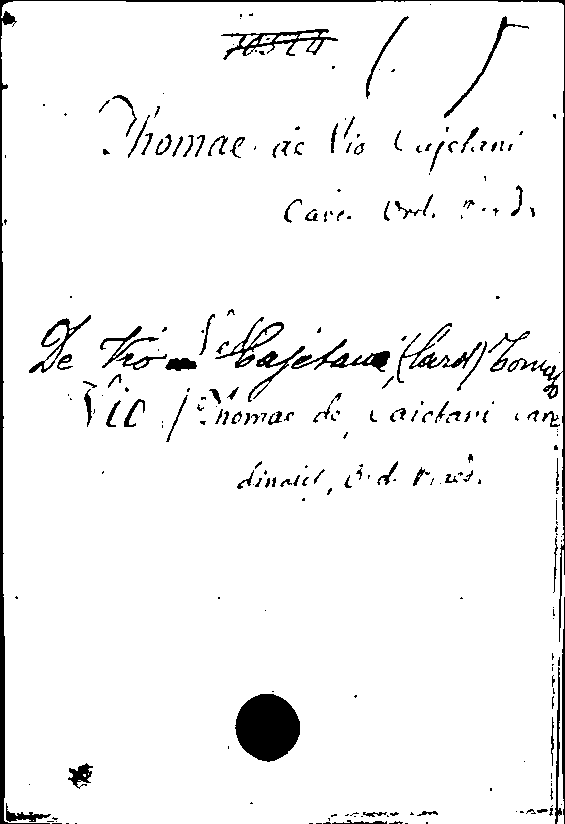 Thomae de Vio Cajetani
Card. Ord. Praed.
De Vio Cajetano, (Card) Tomaso
Vio / Thomae de, Caietani Car
dinalis, Ord. Praed.